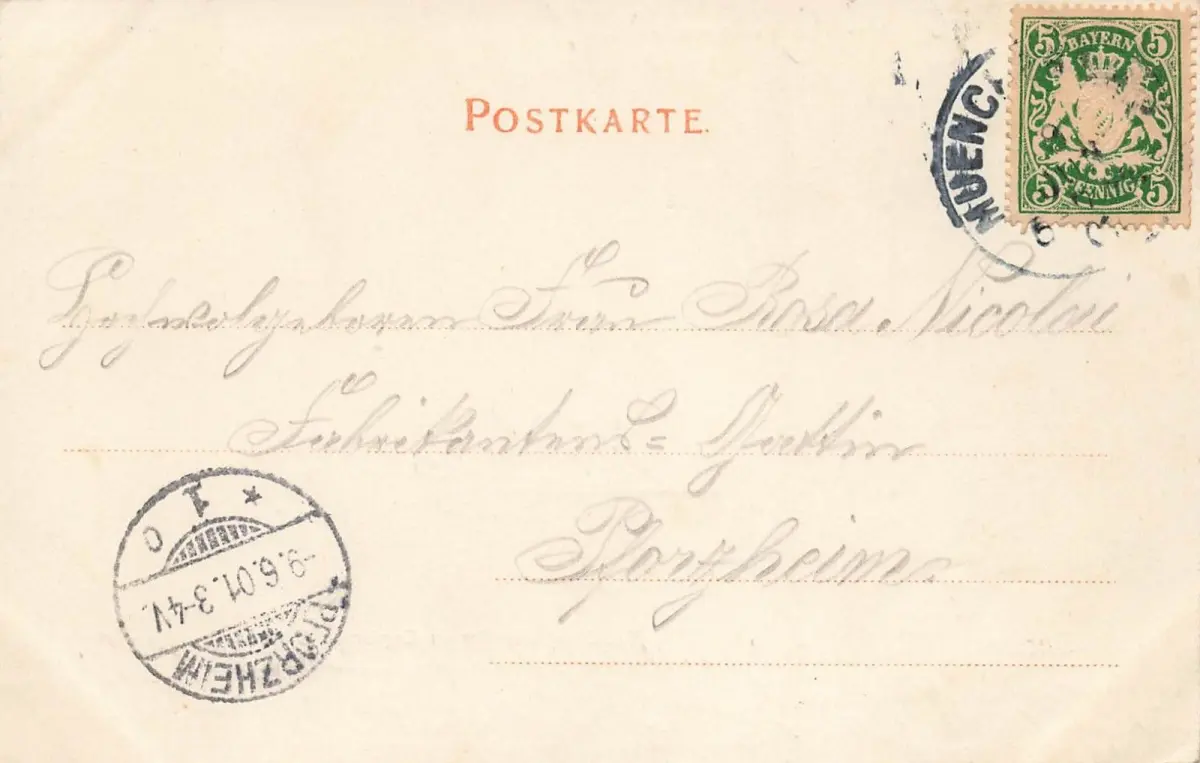 POSTKARTE.
5 BAYERN 5
5 PFENNIG 5
MUENC
Hochwolgeboren Frau Rosa Nicolai
Fabrikantens=Gattin
Pforzheim.
* 1 c
-9.6.01.3-4V.
PFORZHEIM